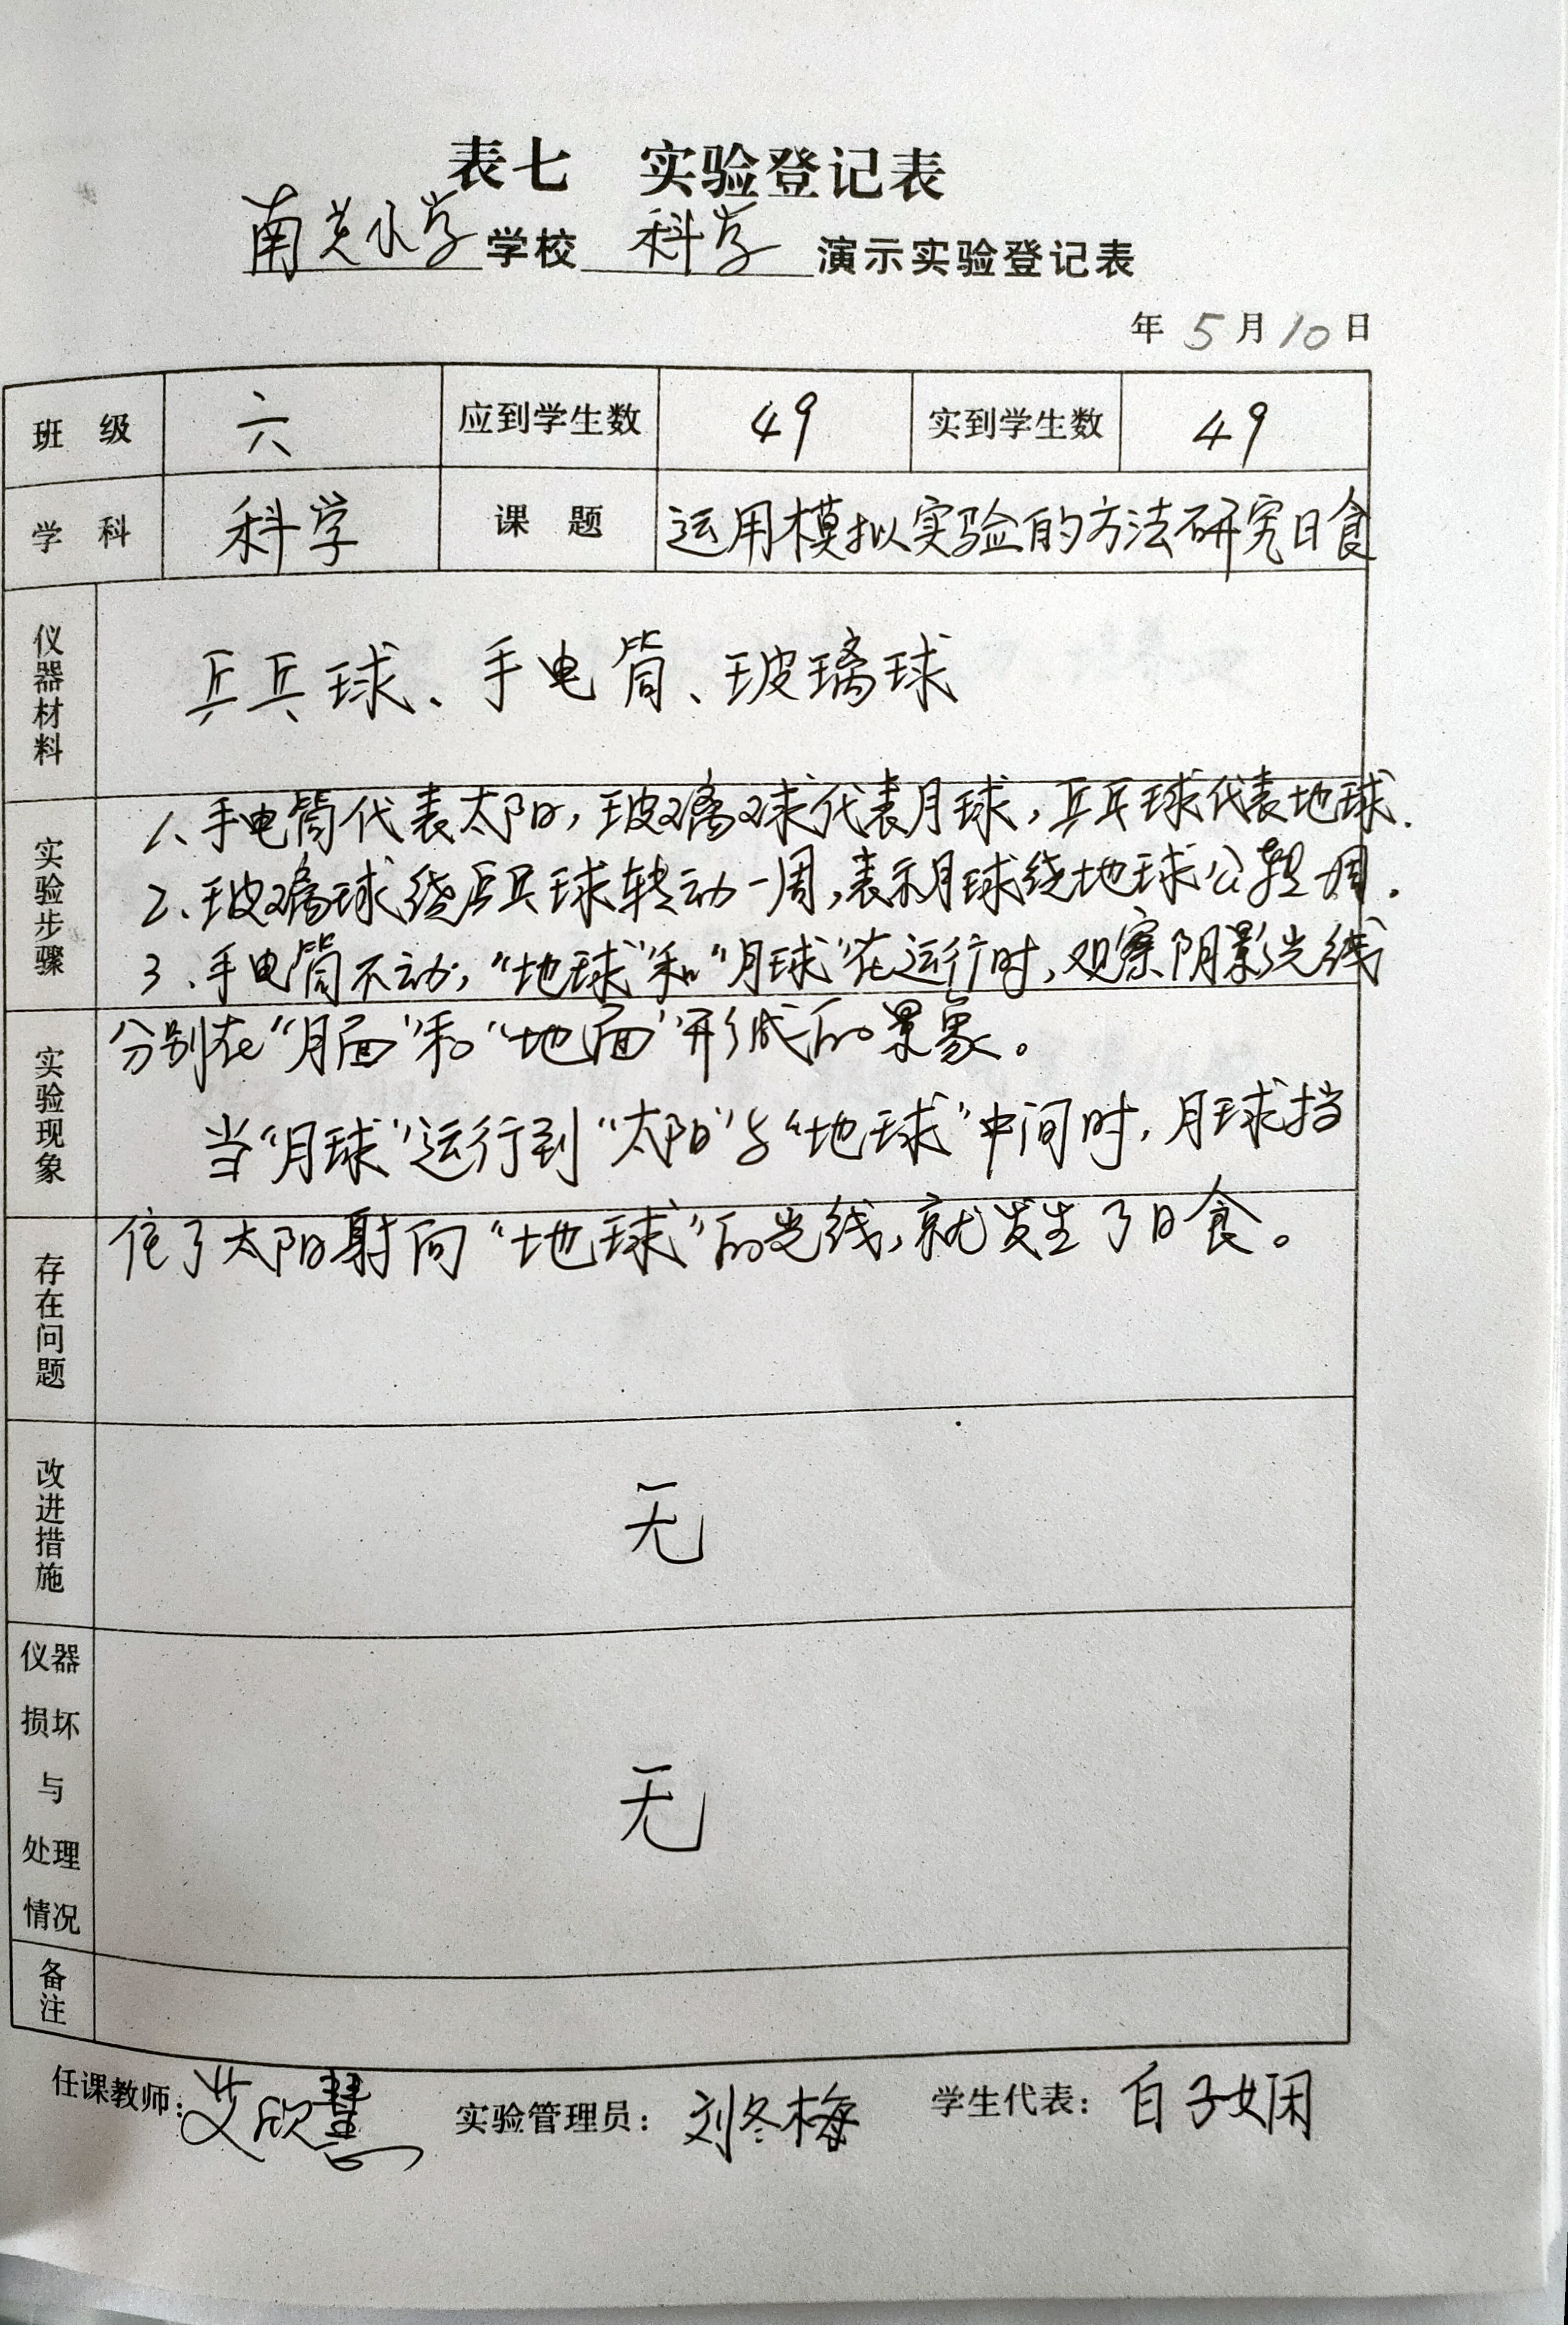 表七 实验登记表
南关小学 学校 科学 演示实验登记表
年 5 月 10 日
班 级 六 应到学生数 49 实到学生数 49
学 科 科学 课 题 运用模拟实验的方法研究日食
仪器材料 乒乓球、手电筒、玻璃球
实验步骤
1、手电筒代表太阳,玻璃球代表月球,乒乓球代表地球.
2、玻璃球绕乒乓球转动一周,表示月球绕地球公转一周.
3、手电筒不动,“地球”和“月球”在运行时,观察阴影光线
分别在“月面”和“地面”形成的景象。
实验现象
当“月球”运行到“太阳”与“地球”中间时,月球挡
住了太阳射向“地球”的光线,就发生了日食。
存在问题
改进措施 无
仪器
损坏
与
处理
情况
无
备注
任课教师: 艾欣慧 实验管理员: 刘冬梅 学生代表: 白子娴